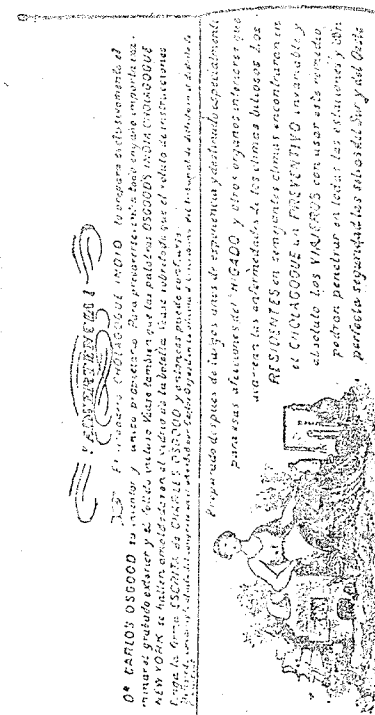 ADVERTENCIA
El verdadero CHOLAGOGUE INDIO lo prepara esclusivamente el
Dr. CARLOS OSGOOD su inventor y unico propietario. Para precaverse contra todo engaño importa exa-
minar el grabado exterior y el folleto incluso Vease tambien que las palabras OSGOOD'S INDIA CHOLAGOGUE
NEW YORK se hallen amoldadas en el vidrio de la botella. Vease sobretodo que el rotulo de instrucciones
tenga la firma ESCRITA de CHARLES OSGOOD y entonces puede confiarse
Preparado despues de largos años de esperiencia y destinado especialmente
para esas afecciones del HIGADO y otros organos interiores que
marcan las enfermedades de los climas biliosos Los
RESIDENTES en semejantes climas encontraran en
el CHOLAGOGUE un PREVENTIVO invariable y
absoluto Los VIAJEROS con usar este remedio
podran penetrar en todas las estaciones y con
perfecta seguridad las selvas del Sur y del Oeste